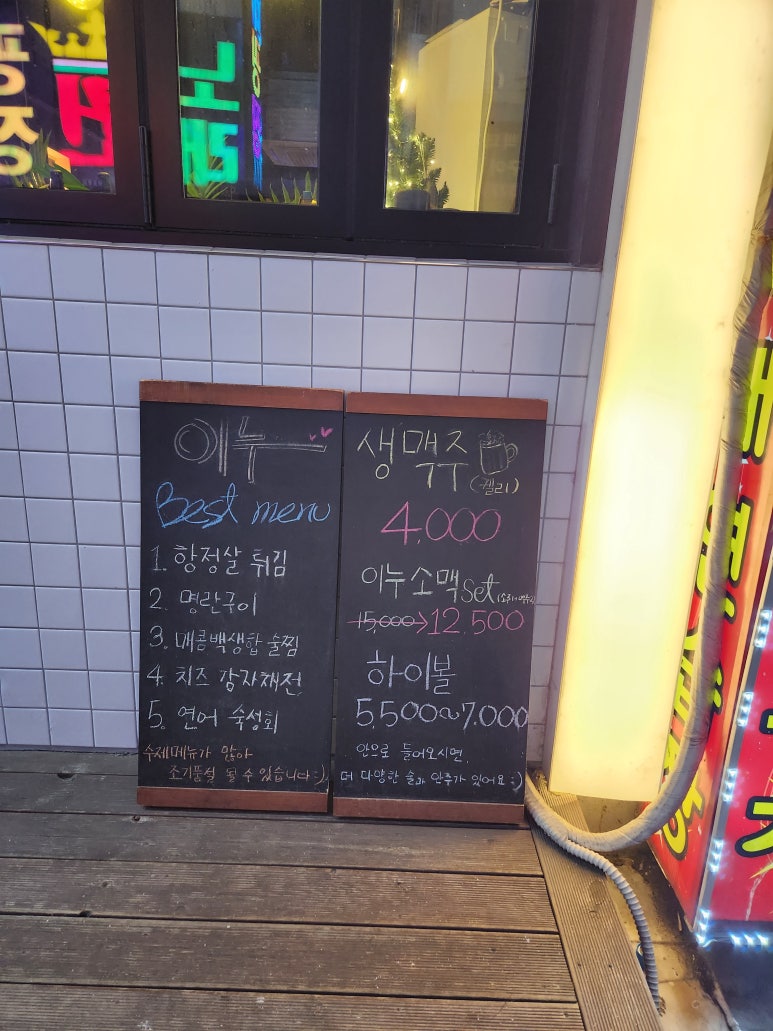 노래
이누
Best menu
1. 항정살 튀김
2. 명란구이
3. 매콤백생합 술찜
4. 치즈 감자채전
5. 연어 숙성회
수제메뉴가 많아
조기품절 될 수 있습니다:)
생맥주
(켈리)
4,000
이누 소맥 set
15,000→12,500
하이볼
5,500~7,000
안으로 들어오시면,
더 다양한 술과 안주가 있어요:)